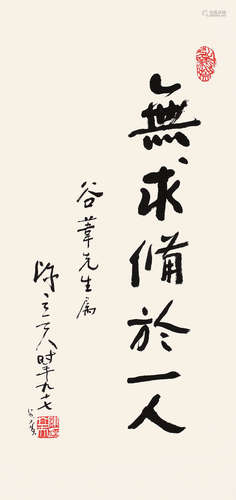 無求備於一人
谷葦先生属
陳立夫時年九十七